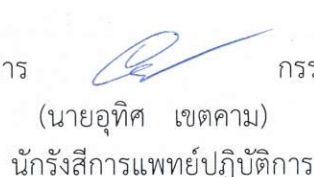 าร กรร
(นายอุทิศ เขตคาม)
นักรังสีการแพทย์ปฏิบัติการ